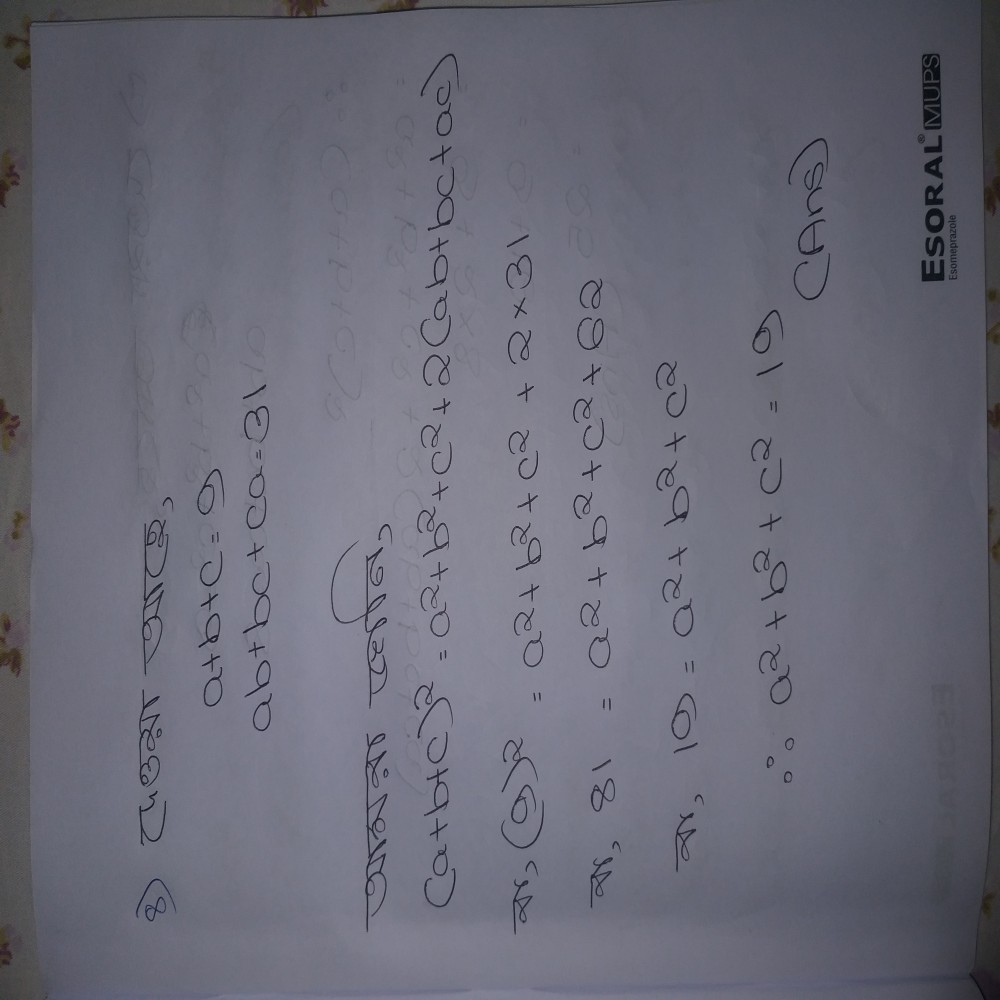 8) দেওয়া আছে,
a+b+c=9
ab+bc+ca=31
আমরা জানি,
(a+b+c)² = a²+b²+c²+2(ab+bc+ac)
বা, (9)² = a²+b²+c²+2×31
বা, 81 = a²+b²+c²+62
বা, 19 = a²+b²+c²
∴ a²+b²+c²=19
(Ans)
ESORAL® MUPS
Esomeprazole